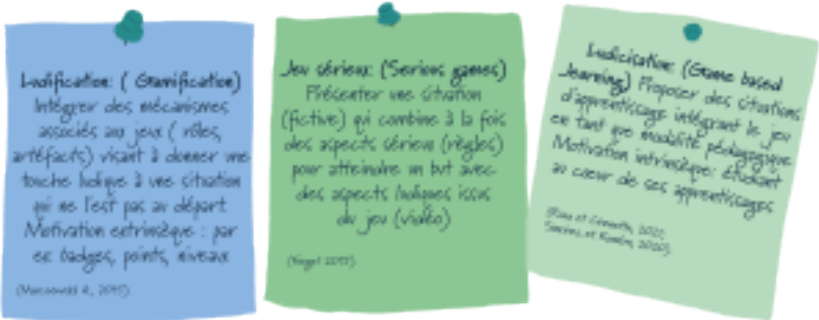 Ludification: ( Gamification)
Intégrer des mécanismes
associés aux jeux ( rôles,
artéfacts) visant à donner une
touche ludique à une situation
qui ne l'est pas au départ.
Motivation extrinsèque : par
ex: badges, points, niveaux
2015).
Jeu sérieux: ('Serious games)
Présenter une situation
(fictive) qui combine à la fois
des aspects sérieux (règles)
pour atteindre un but avec
des aspects ludiques issus
du jeu (vidéo)
Ludicisation: (Game based
learning) Proposer des situations
d'apprentissage intégrant le jeu
en tant que modalité pédagogique
Motivation intrinsèque: étudiant
au cœur de ses apprentissages